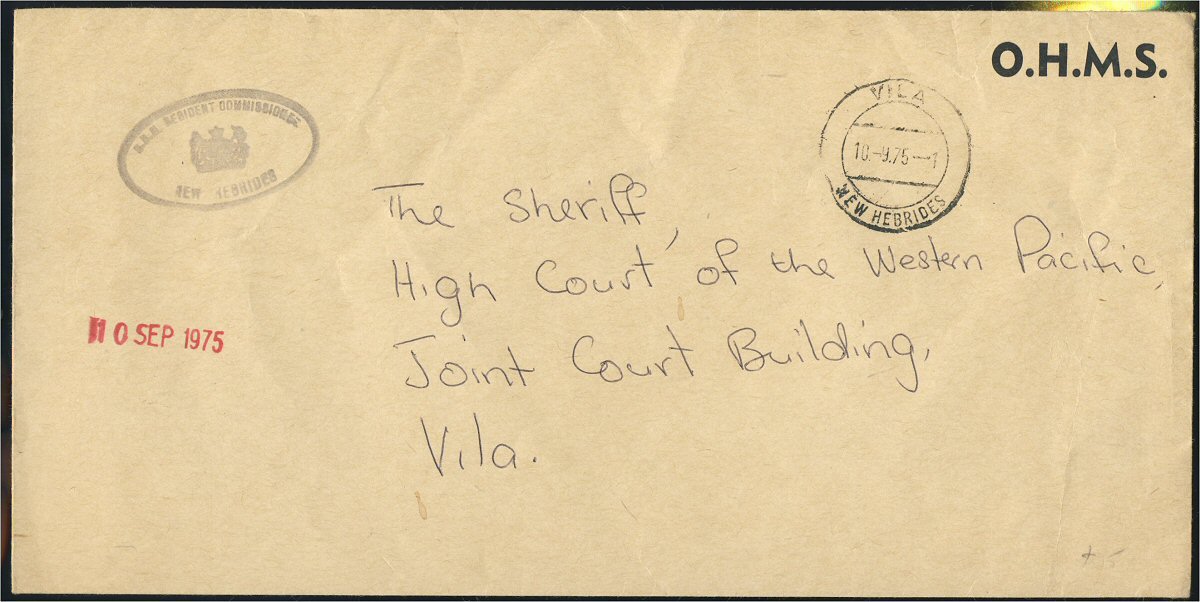 O.H.M.S.
H.B.M. RESIDENT COMMISSIONER
NEW HEBRIDES
VILA
10.-9.75--1
NEW HEBRIDES
The Sheriff,
High Court of the Western Pacific,
Joint Court Building,
Vila.
10 SEP 1975